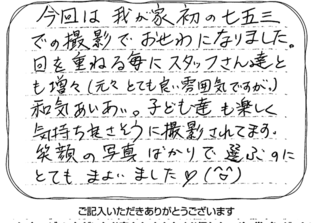 今回は 我が家 初の七五三
での撮影で おせわになりました。
回を重ねる毎に スタッフさん達と
も増々(元々とても良い雰囲気ですが。)
和気あいあい。子ども達も楽しく
気持ち良さそうに撮影されてます。
笑顔の写真ばかりで選ぶのに
とても まよいました♡(^^)
ご記入いただきありがとうございます